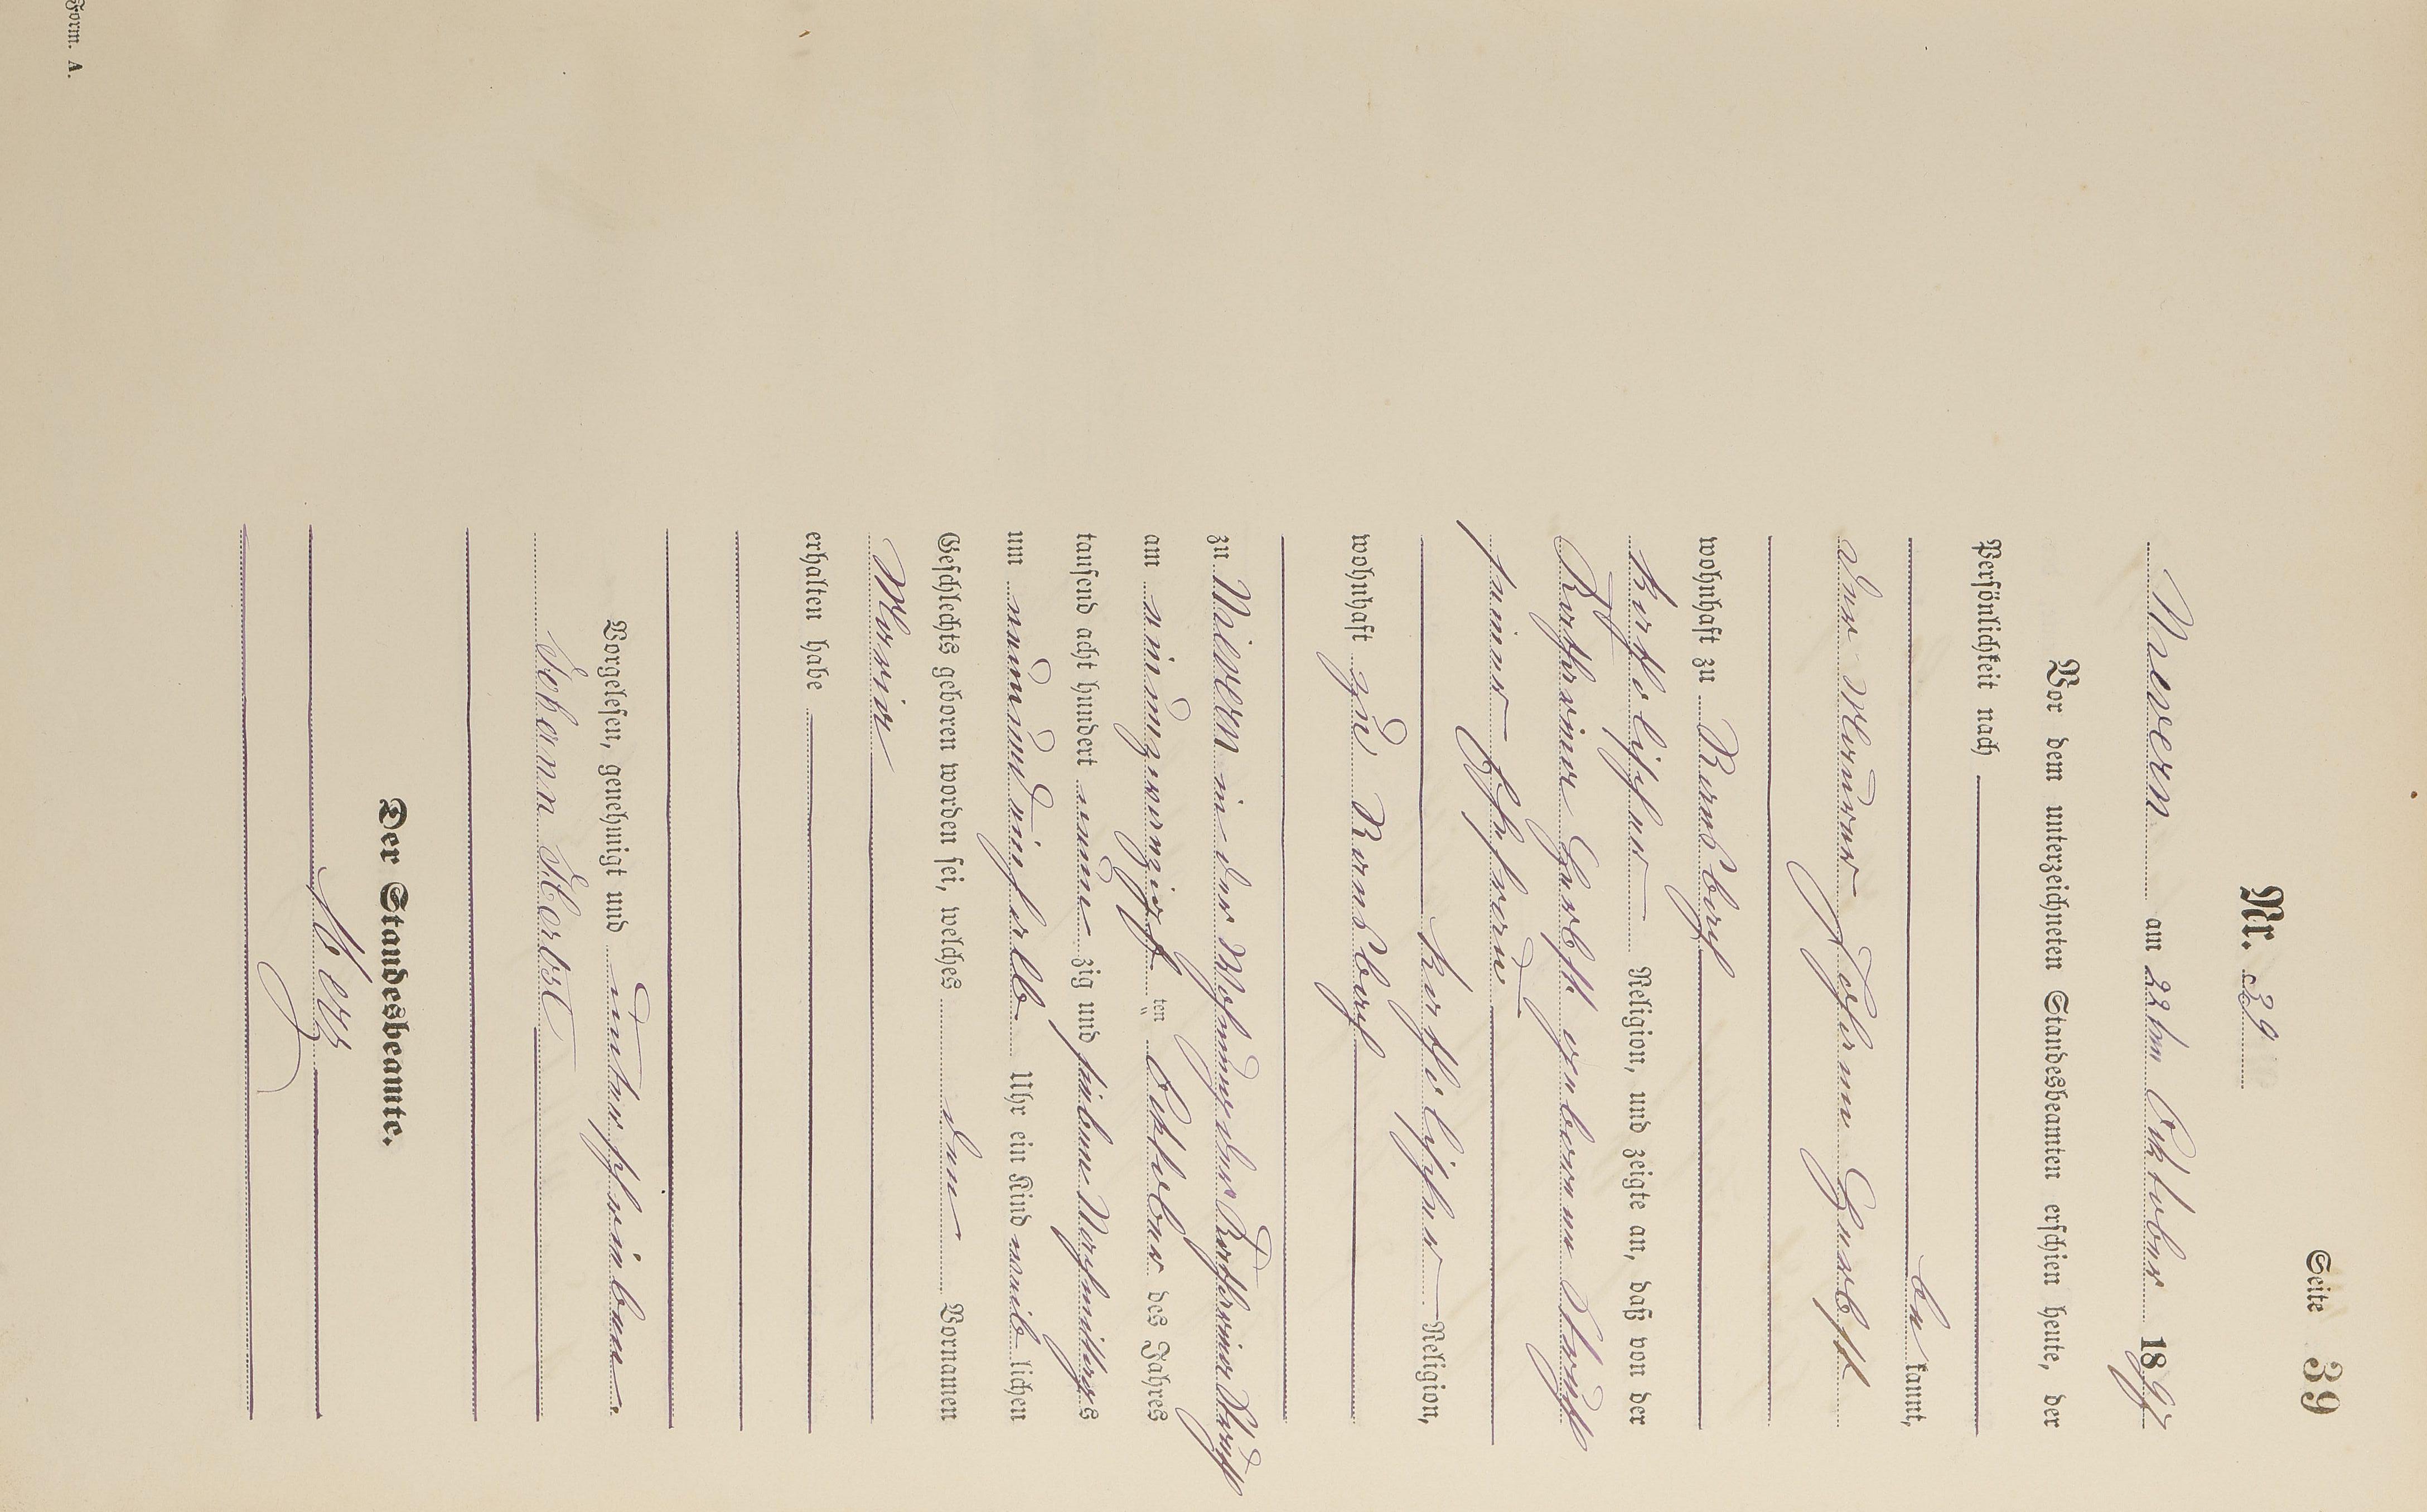 Seite 39
Nr. 39
Nievern am 22ten Oktober 1897
Vor dem unterzeichneten Standesbeamten erschien heute, der
Persönlichkeit nach
be kannt,
der Maurer Johann Herbst
wohnhaft zu Arnsberg
katholischer Religion, und zeigte an, daß von der
Katharina Herbst geborenen Strauß
seiner Ehefrau
katholischer Religion,
wohnhaft zu
zu Nievern in der Wohnung der Katharina Strauß
am einundzwanzigsten ten Oktober des Jahres
tausend acht hundert neun zig und sieben Nachmittags
um neun und einhalb Uhr ein Kind weib lichen
Geschlechts geboren worden sei, welches den Vornamen
Maria
erhalten habe
Vorgelesen, genehmigt und unterschrieben.
Johann Herbst
Der Standesbeamte.
Form. A.